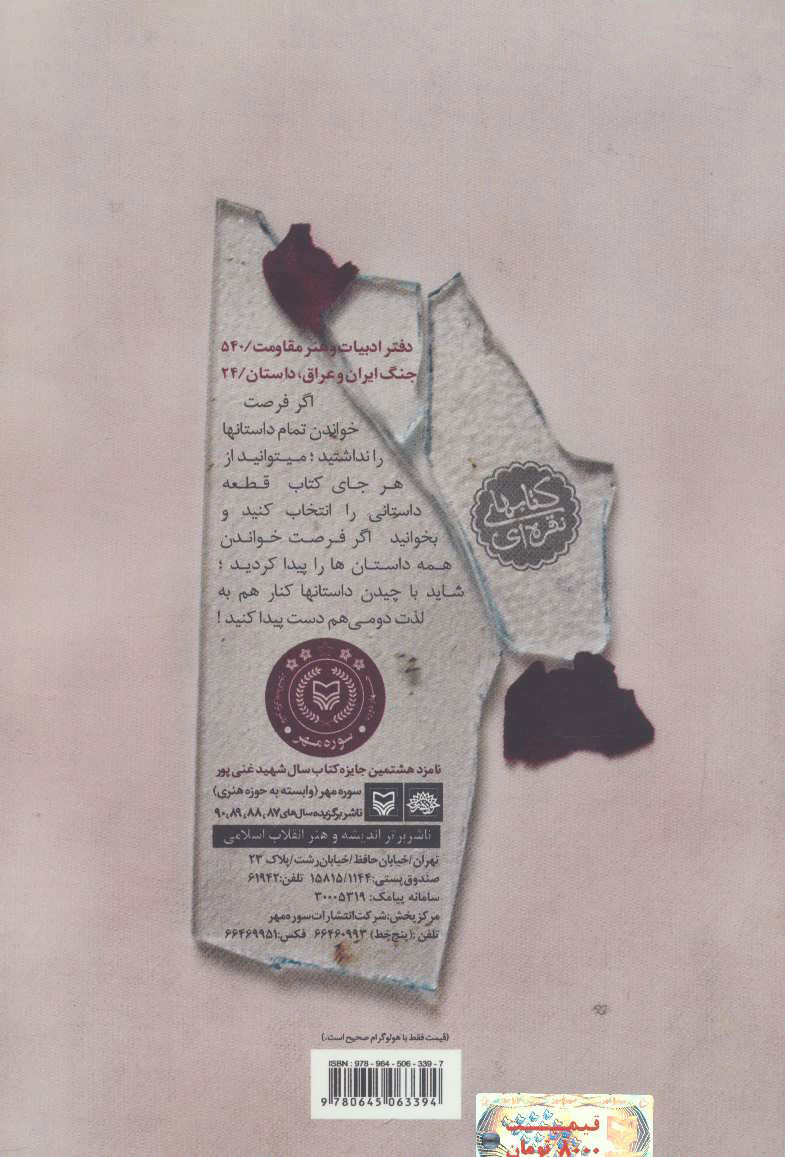 دفتر ادبیات و هنر مقاومت/۵۴۰
جنگ ایران و عراق، داستان/۲۴
اگر فرصت
خواندن تمام داستانها
را نداشتید ؛ میتوانید از
هر جای کتاب قطعه
داستانی را انتخاب کنید و
بخوانید اگر فرصت خواندن
همه داستان ها را پیدا کردید ؛
شاید با چیدن داستانها کنار هم به
لذت دومی هم دست پیدا کنید !
کتابهای
نقره‌ای
سوره مهر
نامزد هشتمین جایزه کتاب سال شهید غنی پور
سوره مهر (وابسته به حوزه هنری)
ناشر برگزیده سال‌های ۸۷، ۸۸، ۸۹، ۹۰
ناشر برتر اندیشه و هنر انقلاب اسلامی
تهران/خیابان حافظ/خیابان رشت/پلاک ۲۳
صندوق پستی: ۱۵۸۱۵/۱۱۴۴ تلفن: ۶۱۹۴۲
سامانه پیامک: ۳۰۰۰۵۳۱۹
مرکز پخش: شرکت انتشارات سوره مهر
تلفن: (پنج خط) ۶۶۴۶۰۹۹۳ فکس: ۶۶۴۶۹۹۵۱
(قیمت فقط با هولوگرام صحیح است.)
ISBN : 978 - 964 - 506 - 339 - 7
9 780645 063394
قیمت
۸۰۰۰ تومان